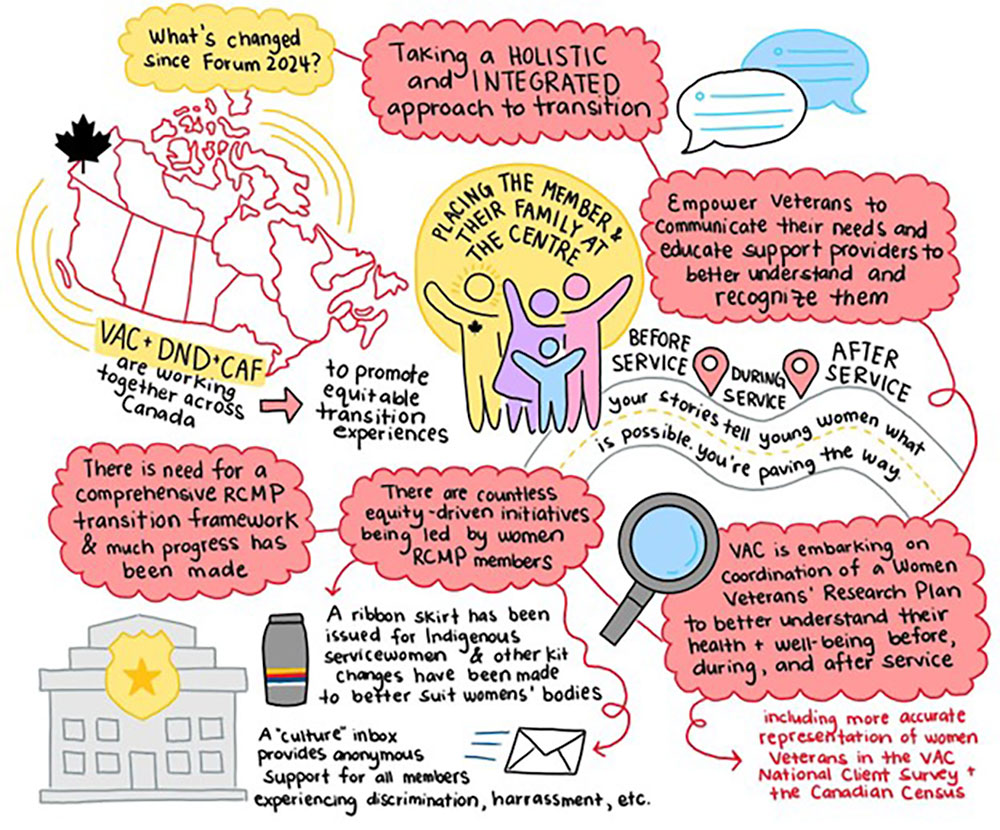 What's changed
since Forum 2024?
Taking a HOLISTIC
and INTEGRATED
approach to transition
PLACING THE MEMBER &
THEIR FAMILY AT
THE CENTRE
Empower Veterans to
communicate their needs and
educate support providers to
better understand and
recognize them
VAC + DND + CAF
are working
together across
Canada
to promote
equitable
transition
experiences
BEFORE
SERVICE
DURING
SERVICE
AFTER
SERVICE
your stories tell young women what
is possible. you're paving the way.
There is need for a
comprehensive RCMP
transition framework
& much progress has
been made
There are countless
equity-driven initiatives
being led by women
RCMP members
VAC is embarking on
Coordination of a Women
Veterans' Research Plan
to better understand their
health + well-being before,
during, and after service
A ribbon skirt has been
issued for Indigenous
servicewomen & other kit
changes have been made
to better suit womens' bodies
A "culture" inbox
provides anonymous
support for all members
experiencing discrimination, harrassment, etc.
including more accurate
representation of women
Veterans in the VAC
National Client Survey +
the Canadian Census